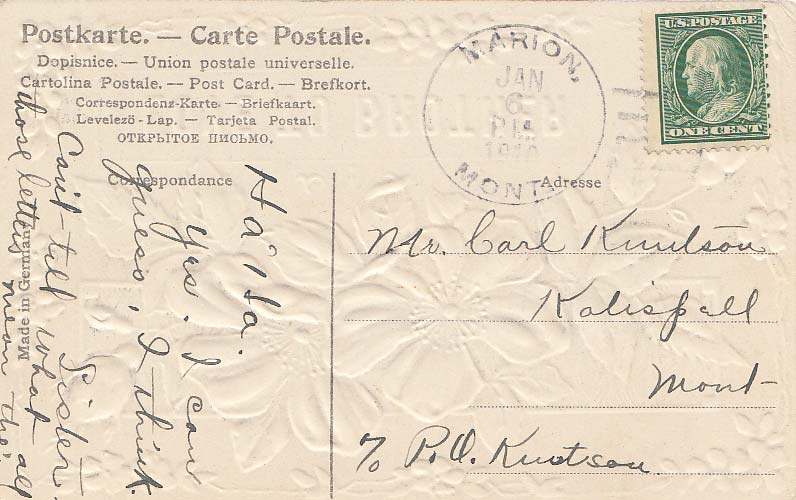 Postkarte. — Carte Postale.
Dopisnice. — Union postale universelle.
Cartolina Postale. — Post Card. — Brefkort.
Correspondenz-Karte. — Briefkaart.
Levelező - Lap. — Tarjeta Postal.
ОТКРЫТОЕ ПИСЬМО.
MARION,
JAN
6
P.M.
1910
MONT.
U.S. POSTAGE
ONE CENT
Correspondance
Adresse
Ha" Ha.
Yes, I can
guess, I think.
Sister.
Can't tell what
those letters mean tho' all
Made in Germany
Mr. Carl Knutson
Kalispell
Mont-
% P.O. Knutson.